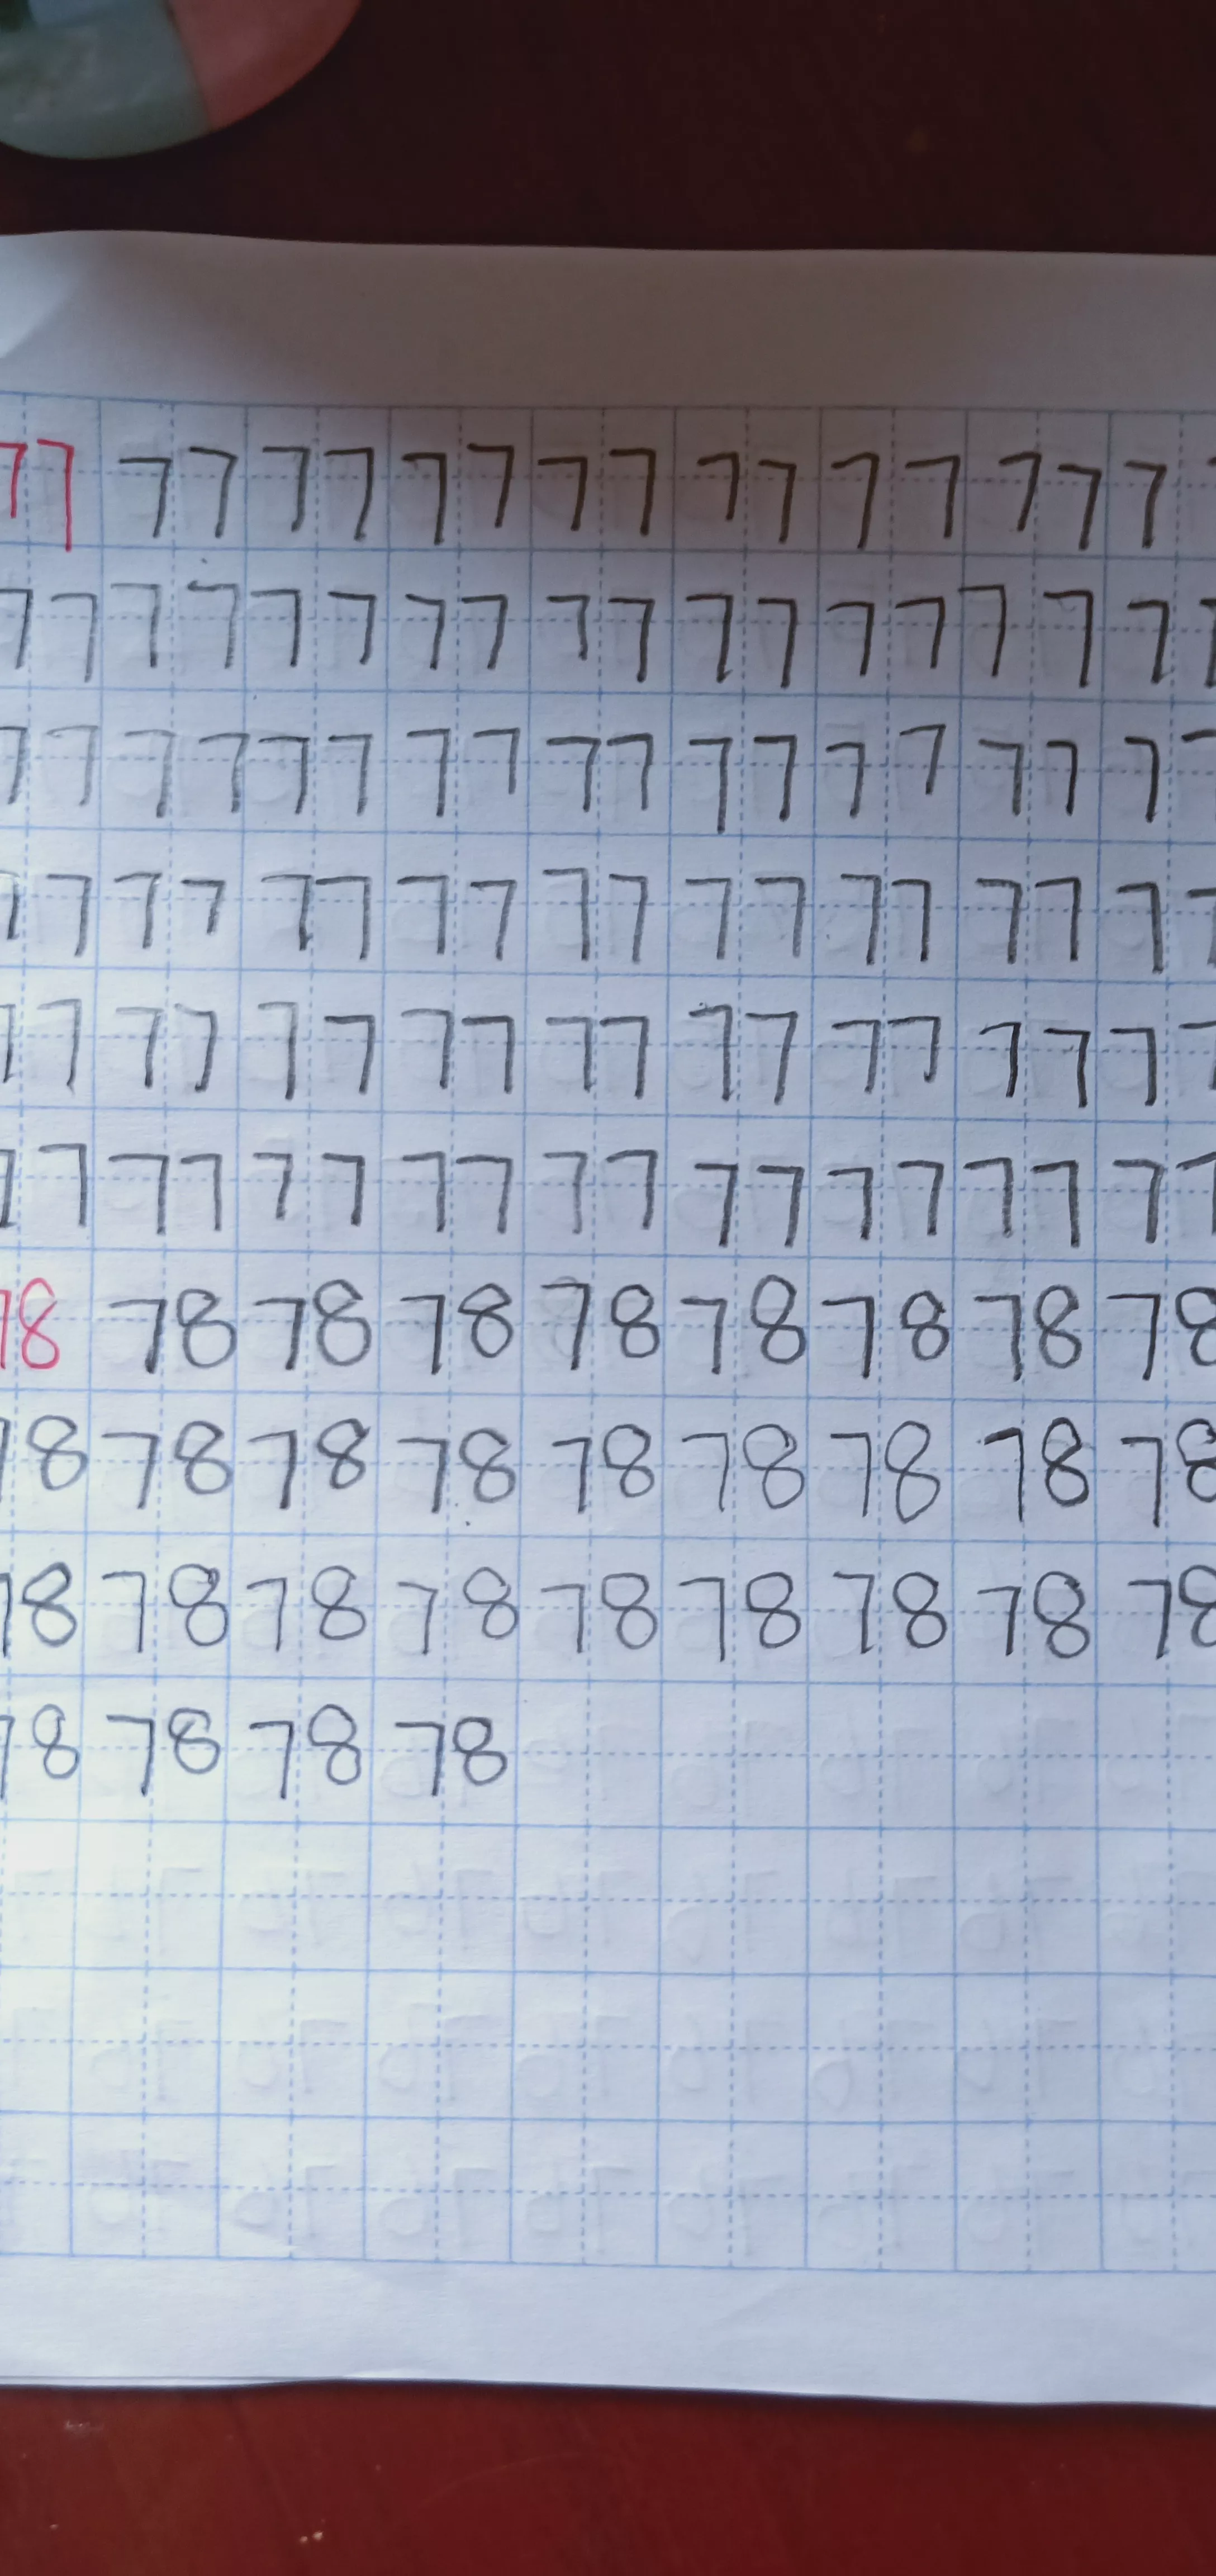 77 77 77 77 77 77 77 77 7
77 77 77 77 77 77 77 77 77
77 77 77 77 77 77 77 77 77
77 77 77 77 77 77 77 77 77
77 77 77 77 77 77 77 77 77
77 77 77 77 77 77 77 77 77
78 78 78 78 78 78 78 78 78
78 78 78 78 78 78 78 78 78
78 78 78 78 78 78 78 78 78
78 78 78 78